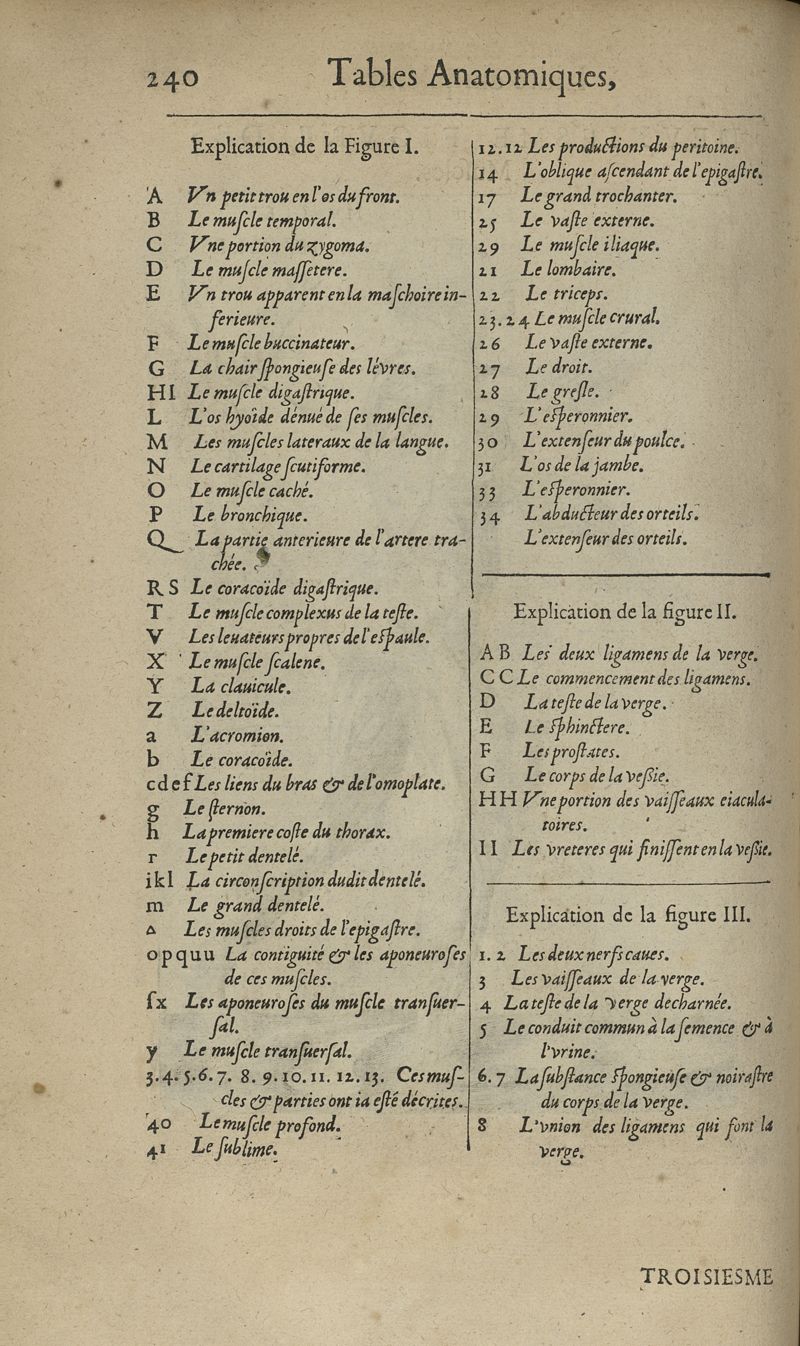 240 Tables Anatomiques,
Explication de la Figure I.
A Vn petit trou en l'os du front.
B Le muſcle temporal.
C Vne portion du zygoma.
D Le muſcle maſſetere.
E Vn trou apparent en la maſchoire in-
ferieure.
F Le muſcle buccinateur.
G La chair ſpongieuſe des lévres.
HI Le muſcle digaſtrique.
L L'os hyoïde dénué de ſes muſcles.
M Les muſcles lateraux de la langue.
N Le cartilage ſcutiforme.
O Le muſcle caché.
P Le bronchique.
Q La partie anterieure de l'artere tra-
chée.
R S Le coracoïde digaſtrique.
T Le muſcle complexus de la teſte.
V Les leuateurs propres de l'eſpaule.
X Le muſcle ſcalene.
Y La clauicule.
Z Le deltoïde.
a L'acromion.
b Le coracoïde.
c d e f Les liens du bras & de l'omoplate.
g Le ſternon.
h La premiere coſte du thorax.
r Le petit dentelé.
i k l La circonſcription dudit dentelé.
m Le grand dentelé.
▵ Les muſcles droits de l'epigaſtre.
o p q u u La contiguité & les aponeuroſes
de ces muſcles.
ſ x Les aponeuroſes du muſcle tranſuer-
ſal.
y Le muſcle tranſuerſal.
3. 4. 5. 6. 7. 8. 9. 10. 11. 12. 13. Ces muſ-
cles & parties ont ia eſté décrites.
40 Le muſcle profond.
41 Le ſublime.
12. 12 Les productions du peritoine.
14 L'oblique aſcendant de l'epigaſtre.
17 Le grand trochanter.
25 Le vaſte externe.
29 Le muſcle iliaque.
21 Le lombaire.
22 Le triceps.
23. 24 Le muſcle crural.
26 Le vaſte externe.
27 Le droit.
28 Le greſle.
29 L'eſperonnier.
30 L'extenſeur du poulce.
31 L'os de la jambe.
33 L'eſperonnier.
34 L'abducteur des orteils.
L'extenſeur des orteils.
Explication de la figure II.
A B Les deux ligamens de la verge.
C C Le commencement des ligamens.
D La teſte de la verge.
E Le ſphinctere.
F Les proſtates.
G Le corps de la veſsie.
H H Vne portion des vaiſſeaux eiacula-
toires.
I I Les vreteres qui finiſſent en la veſsie.
Explication de la figure III.
1. 2 Les deux nerfs caues.
3 Les vaiſſeaux de la verge.
4 La teſte de la verge decharnée.
5 Le conduit commun à la ſemence & à
l'vrine.
6. 7 La ſubſtance ſpongieuſe & noiraſtre
du corps de la verge.
8 L'vnion des ligamens qui font la
verge.
TROISIESME